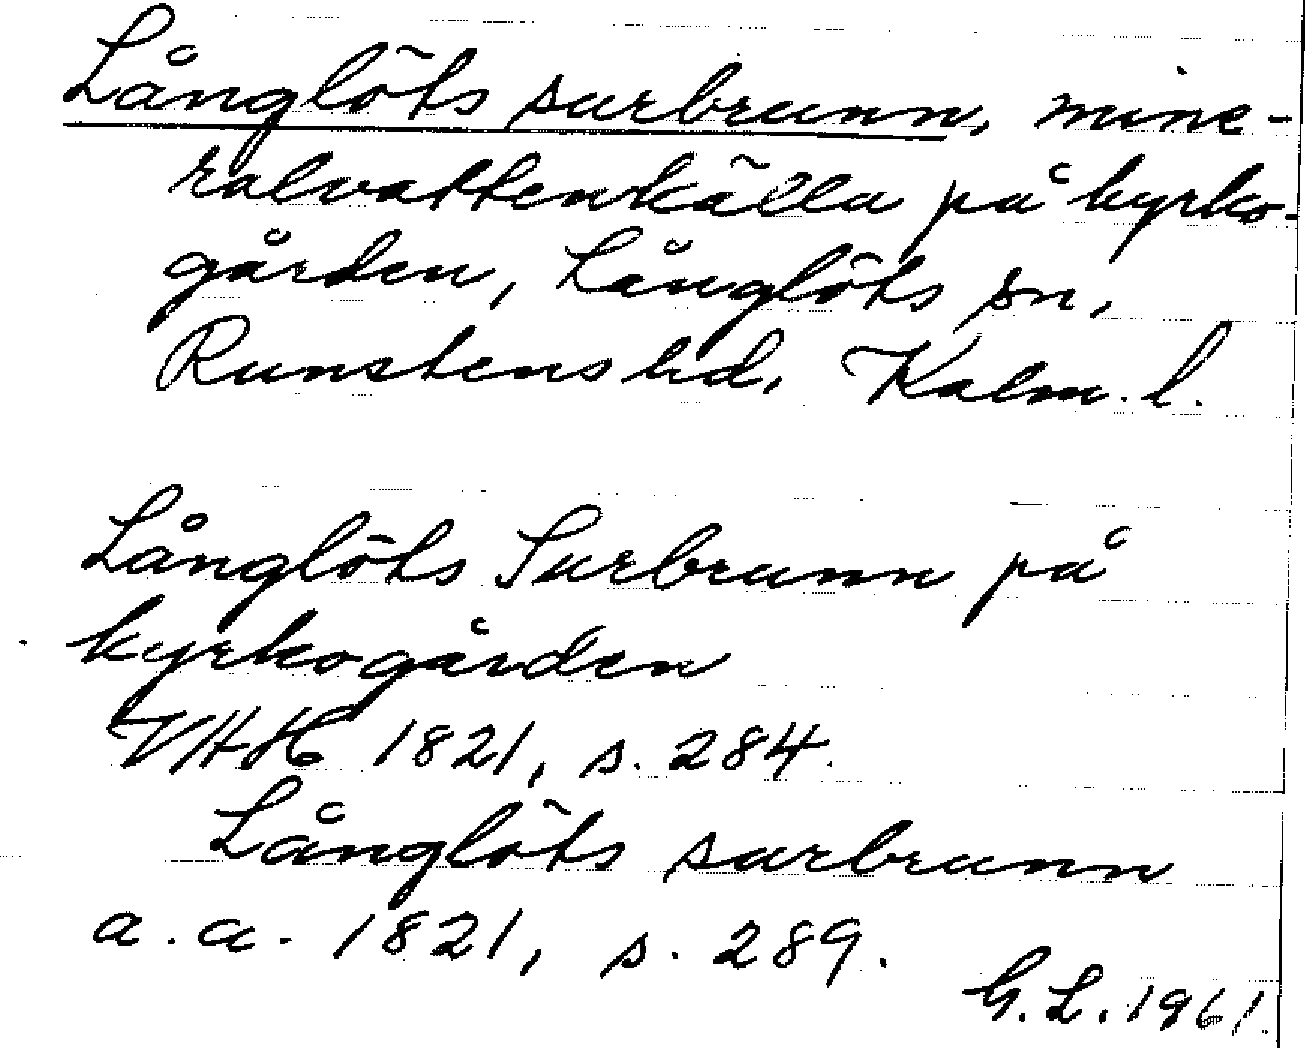 Långlöts surbrunn, mine-
ralvattenkälla på kyrko-
gården, Långlöts sn,
Runstens hd, Kalm. l.
Långlöts Surbrunn på
kyrkogården
VHH 1821, s. 284.
Långlöts surbrunn
a. a. 1821, s. 289.
G. L. 1961.